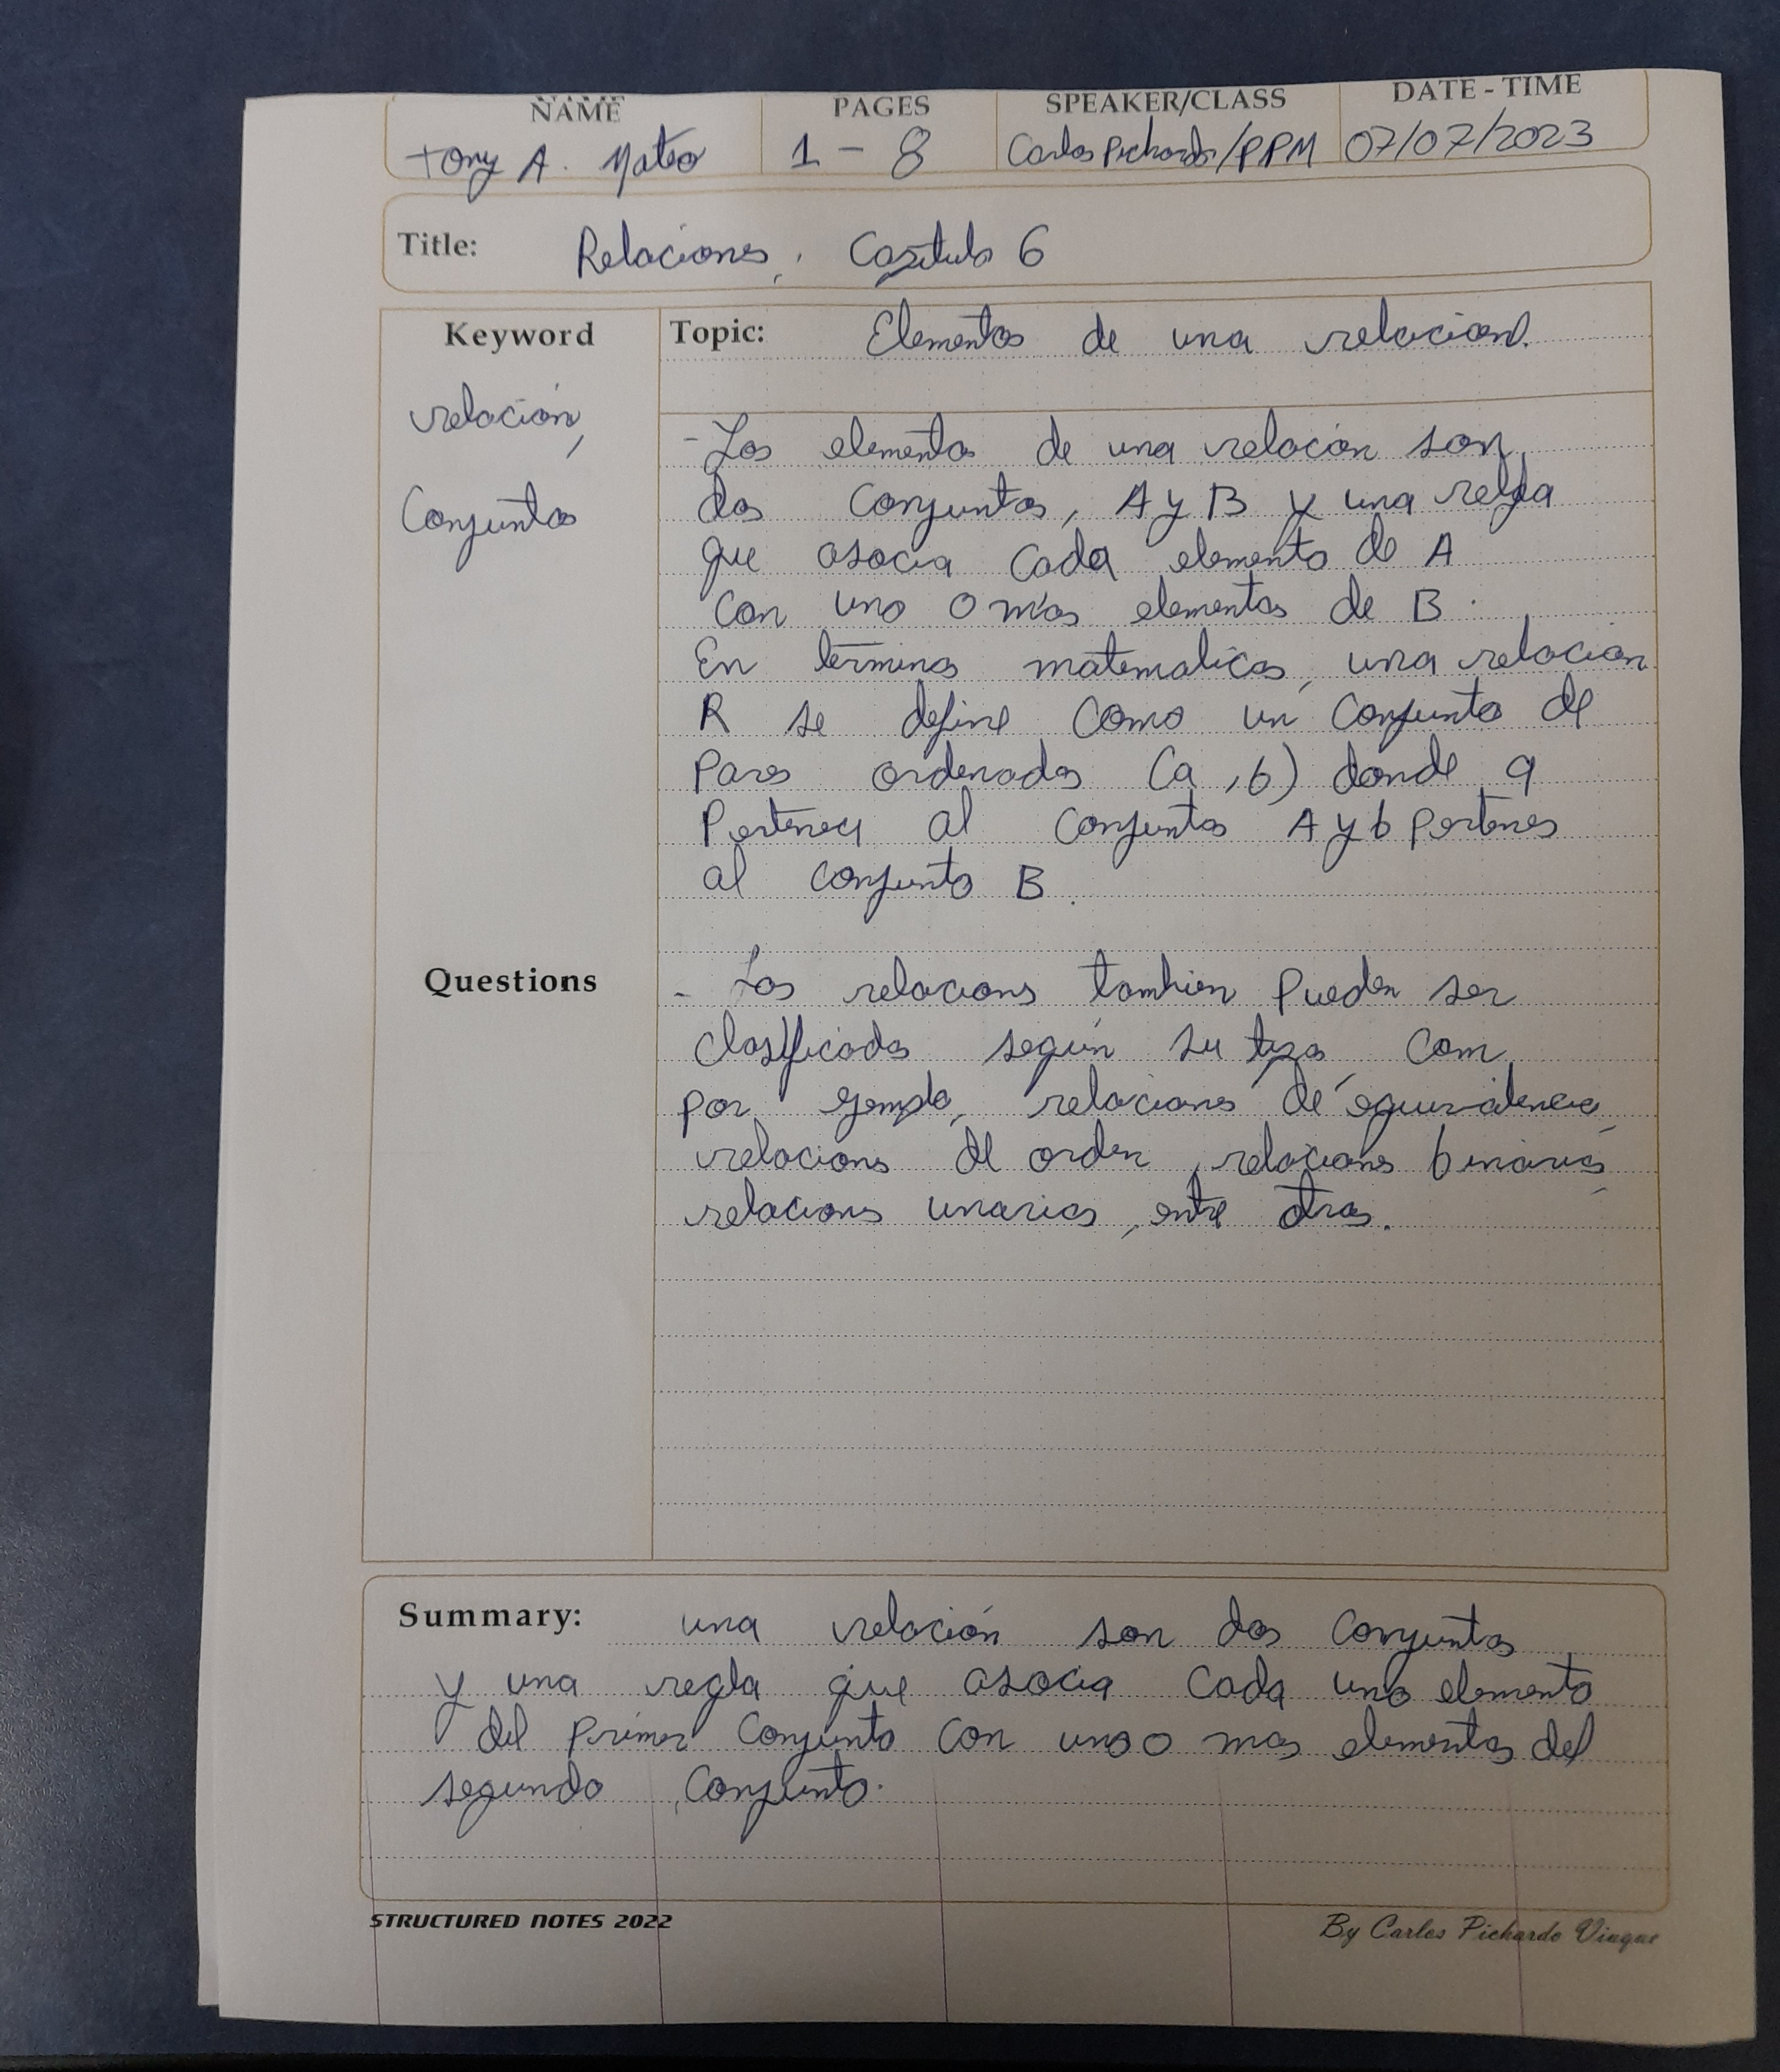 NAME PAGES SPEAKER/CLASS DATE - TIME
Tony A. Mateo 1 - 8 Carlos Pichardo/PPM 07/07/2023
Title: Relaciones, Capítulo 6
Keyword Topic: Elementos de una relacion.
relación,
Conjuntos
- Los elementos de una relación son,
dos Conjuntos, A y B y una regla
que asocia cada elemento de A
con uno o más elementos de B.
En términos matematicos, una relacion
R se define como un Conjunto de
Pares ordenados (a, b) donde a
Pertenece al Conjuntos A y b pertenes
al conjunto B.
Questions - Las relacions tambien Pueden ser
clasificados según su tipo, com
por ejemplo, relaciones de equivalencia,
relacions de orden, relaciones binarias,
relacions unarias, entre otras.
Summary: una relación son dos Conjuntos
y una regla que asocia cada uno elemento
del primer Conjunto con uno o mas elementos del
segundo Conjunto.
STRUCTURED NOTES 2022 By Carlos Pichardo Viuque